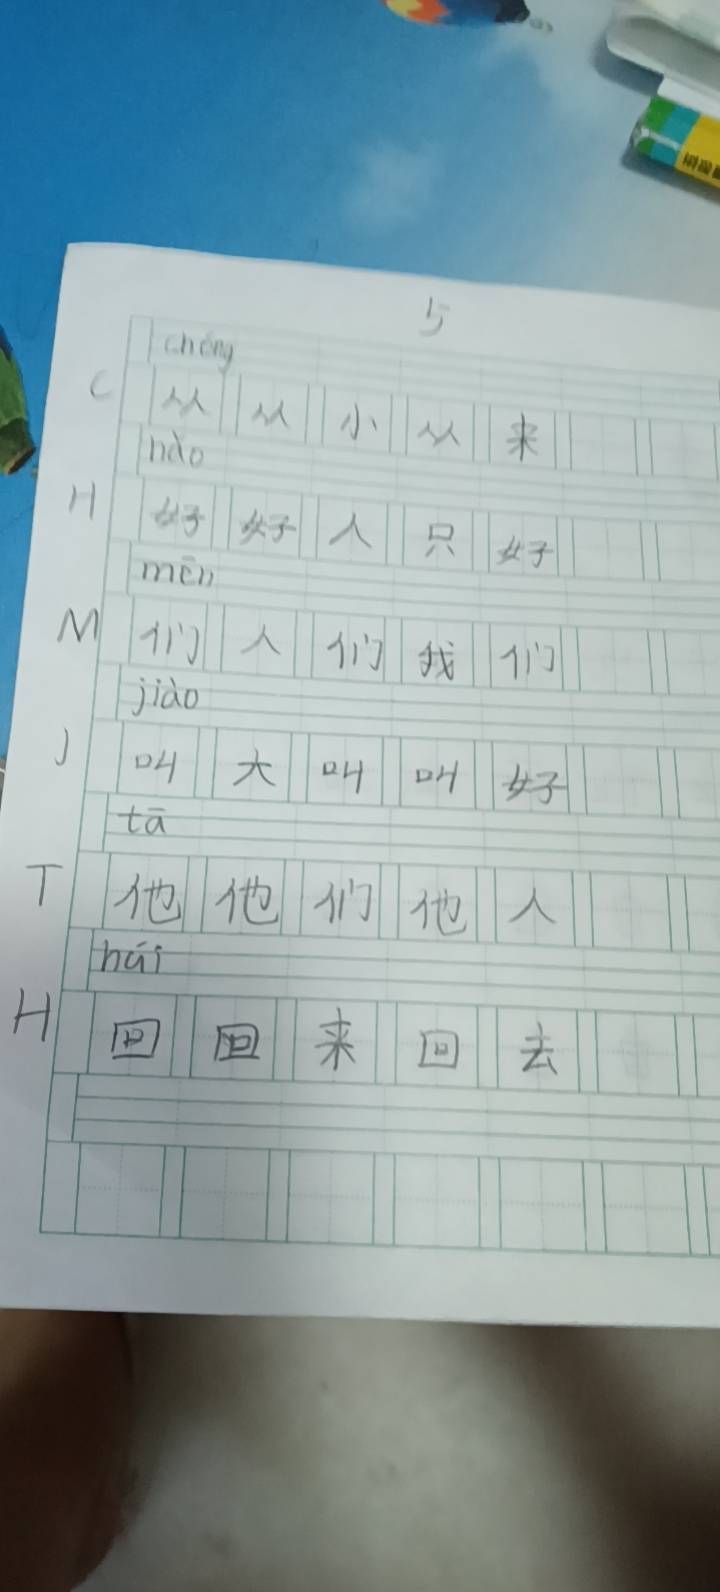 5
chéng
C 从 从 小 从 来
hǎo
H 好 好 人 只 好
mēn
M 们 人 们 我 们
jiào
J 叫 大 叫 叫 好
tā
T 他 他 们 他 人
húi
H 回 回 来 回 去